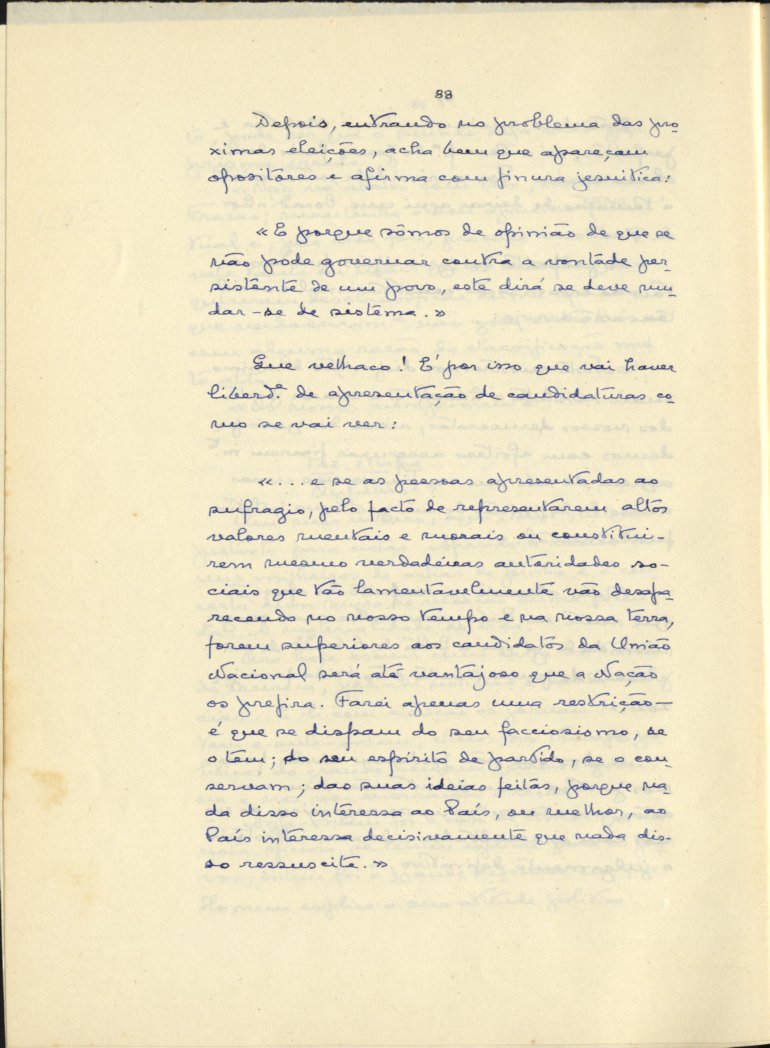 88
Depois, entrando no problema das pro-
ximas eleições, acha bem que apareçam
opositores e afirma com finura jesuitica:
« E porque sômos de opinião de que se
não pode governar contra a vontade per-
sistente de um povo, este dirá se deve mu-
dar-se de sistema. »
Que velhaco! E' por isso que vai haver
liberd.e de apresentação de candidaturas co-
mo se vai ver:
«... e se as pessoas apresentadas ao
sufragio, pelo facto de representarem altos
valores mentais e morais ou constitui-
rem mesmo verdadeiras autoridades so-
ciais que tão lamentavelmente vão desapa-
recendo no nosso tempo e na nossa terra,
forem superiores aos candidatos da União
Nacional será até vantajoso que a Nação
os prefira. Farei apenas uma restrição—
é que se dispam do seu facciosismo, se
o têm; do seu espírito de partido, se o con-
servam; das suas ideias feitas, porque na-
da disso interessa ao País, ou melhor, ao
País interessa decisivamente que nada dis-
so ressuscite. »